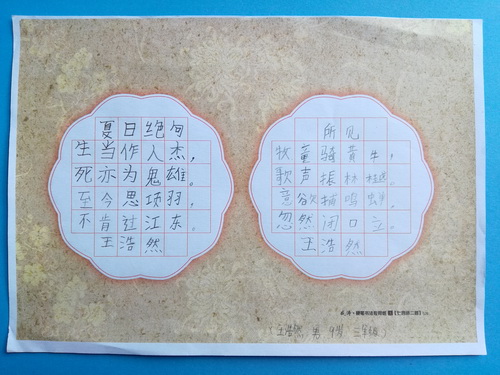 夏日绝句
生当作人杰，
死亦为鬼雄。
至今思项羽，
不肯过江东。
王浩然
所见
牧童骑黄牛，
歌声振林樾。
意欲捕鸣蝉，
忽然闭口立。
王浩然
(王浩然 男 9岁 三年级)